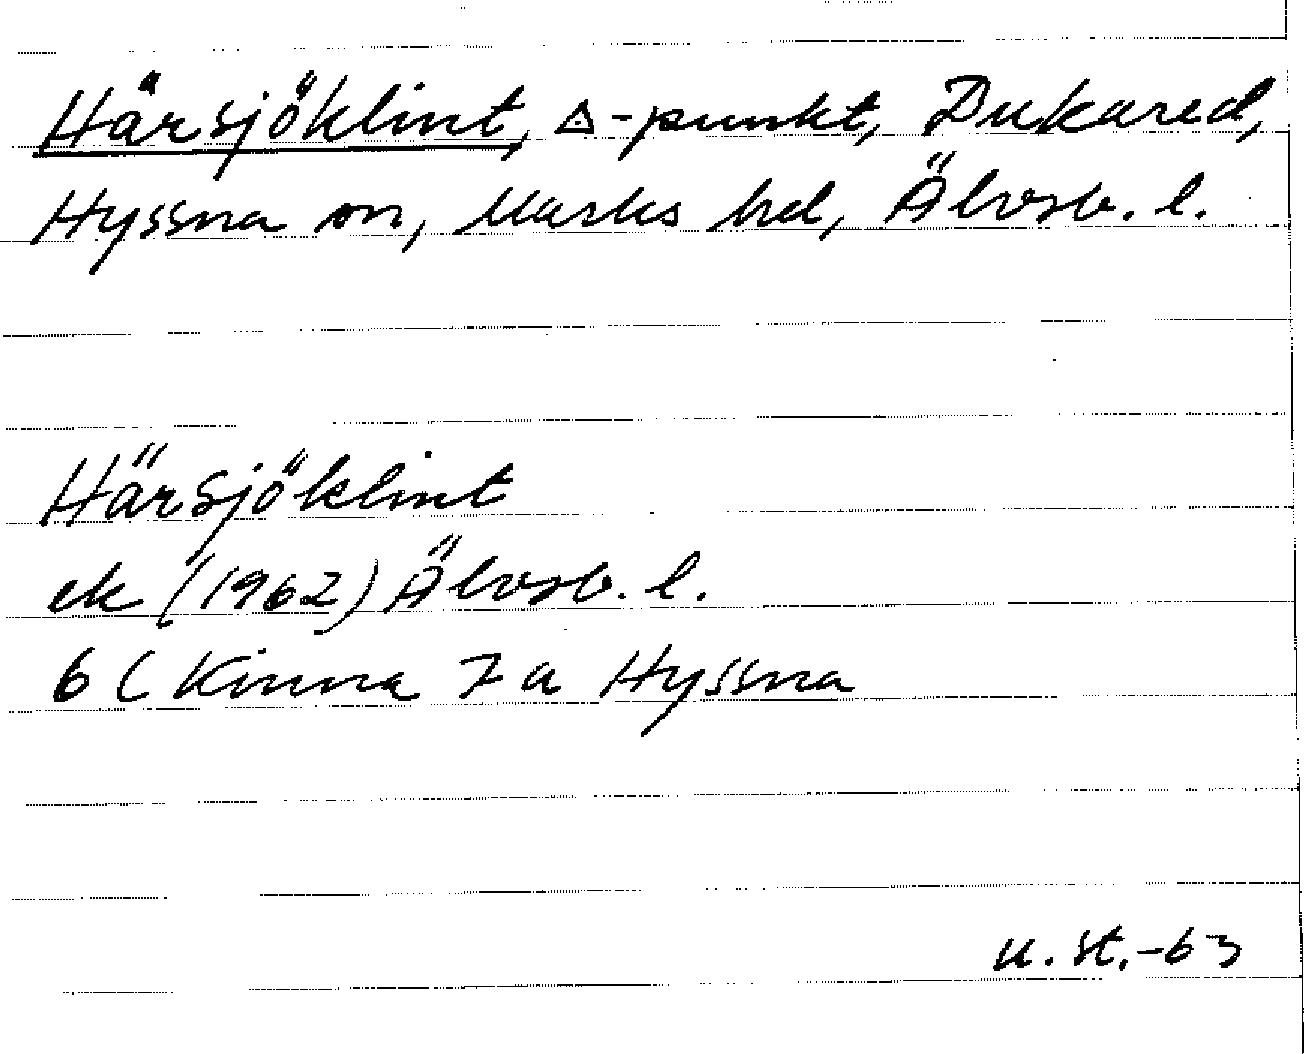 Härsjöklint, △-punkt, Dukared,
Hyssna sn, Marks hd, Älvsb. l.
Härsjöklint
ek (1962) Älvsb. l.
6 C Kinna 7 a Hyssna
u. st. -63